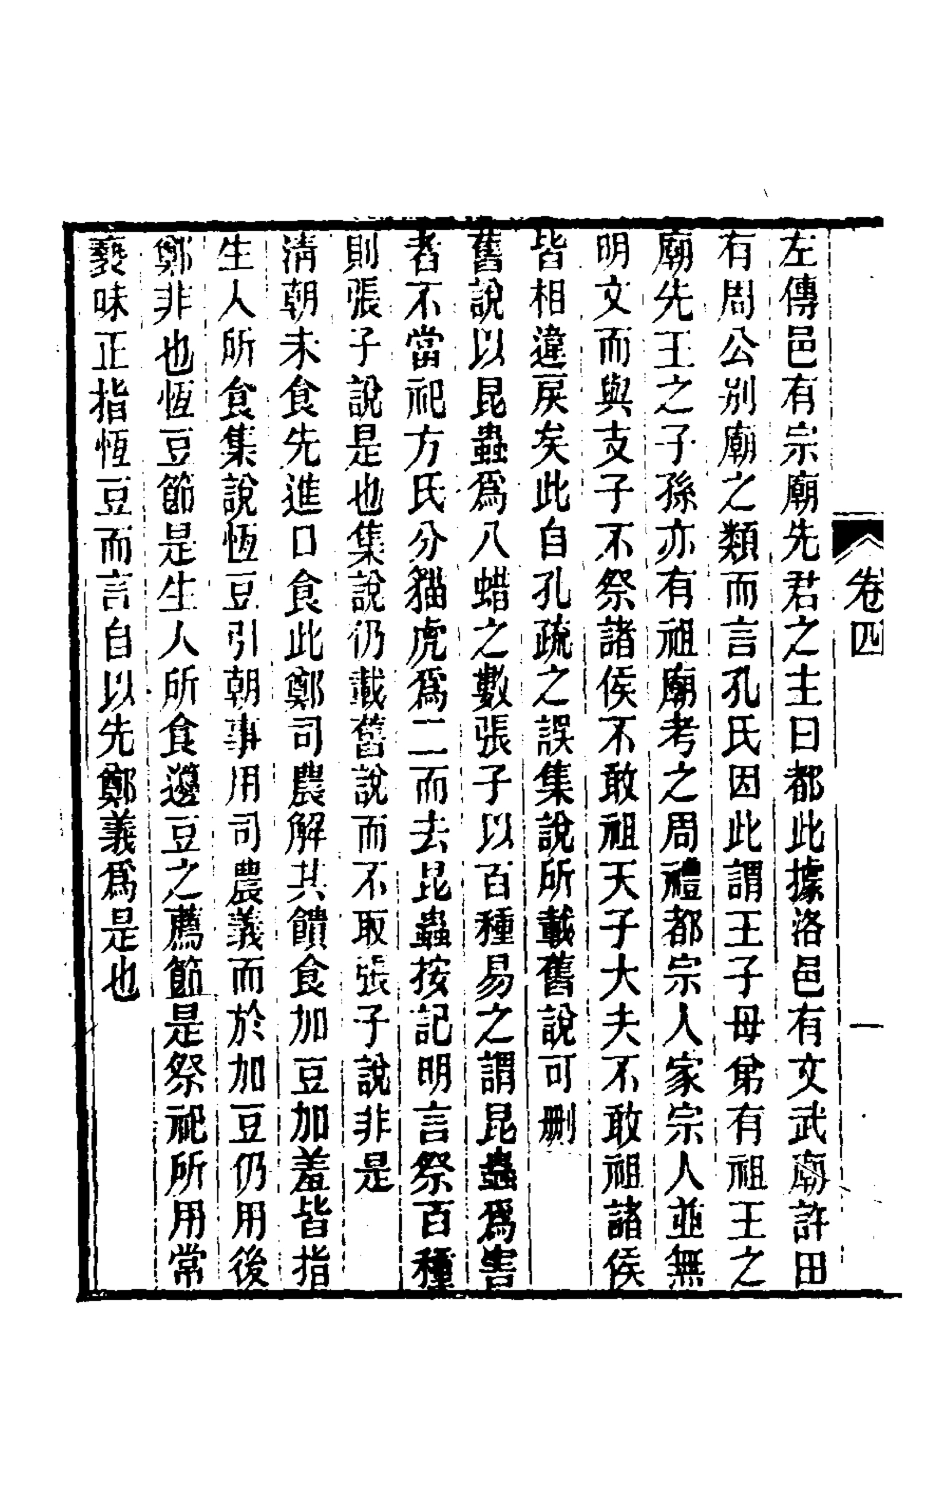 卷四
一
左傳邑有宗廟先君之主曰都此據洛邑有文武廟許田
有周公別廟之類而言孔氏因此謂王子母弟有祖王之
廟先王之子孫亦有祖廟考之周禮都宗人家宗人並無
明文而與支子不祭諸侯不敢祖天子大夫不敢祖諸侯
皆相違戾矣此自孔疏之誤集說所載舊說可刪
舊說以昆蟲爲八蜡之數張子以百種易之謂昆蟲爲害
者不當祀方氏分貓虎爲二而去昆蟲按記明言祭百種
則張子說是也集說仍載舊說而不取張子說非是
清朝未食先進口食此鄭司農解其饋食加豆加羞皆指
生人所食集說恆豆引朝事用司農義而於加豆仍用後
鄭非也恆豆節是生人所食邊豆之薦節是祭祀所用常
褻味正指恆豆而言自以先鄭義爲是也